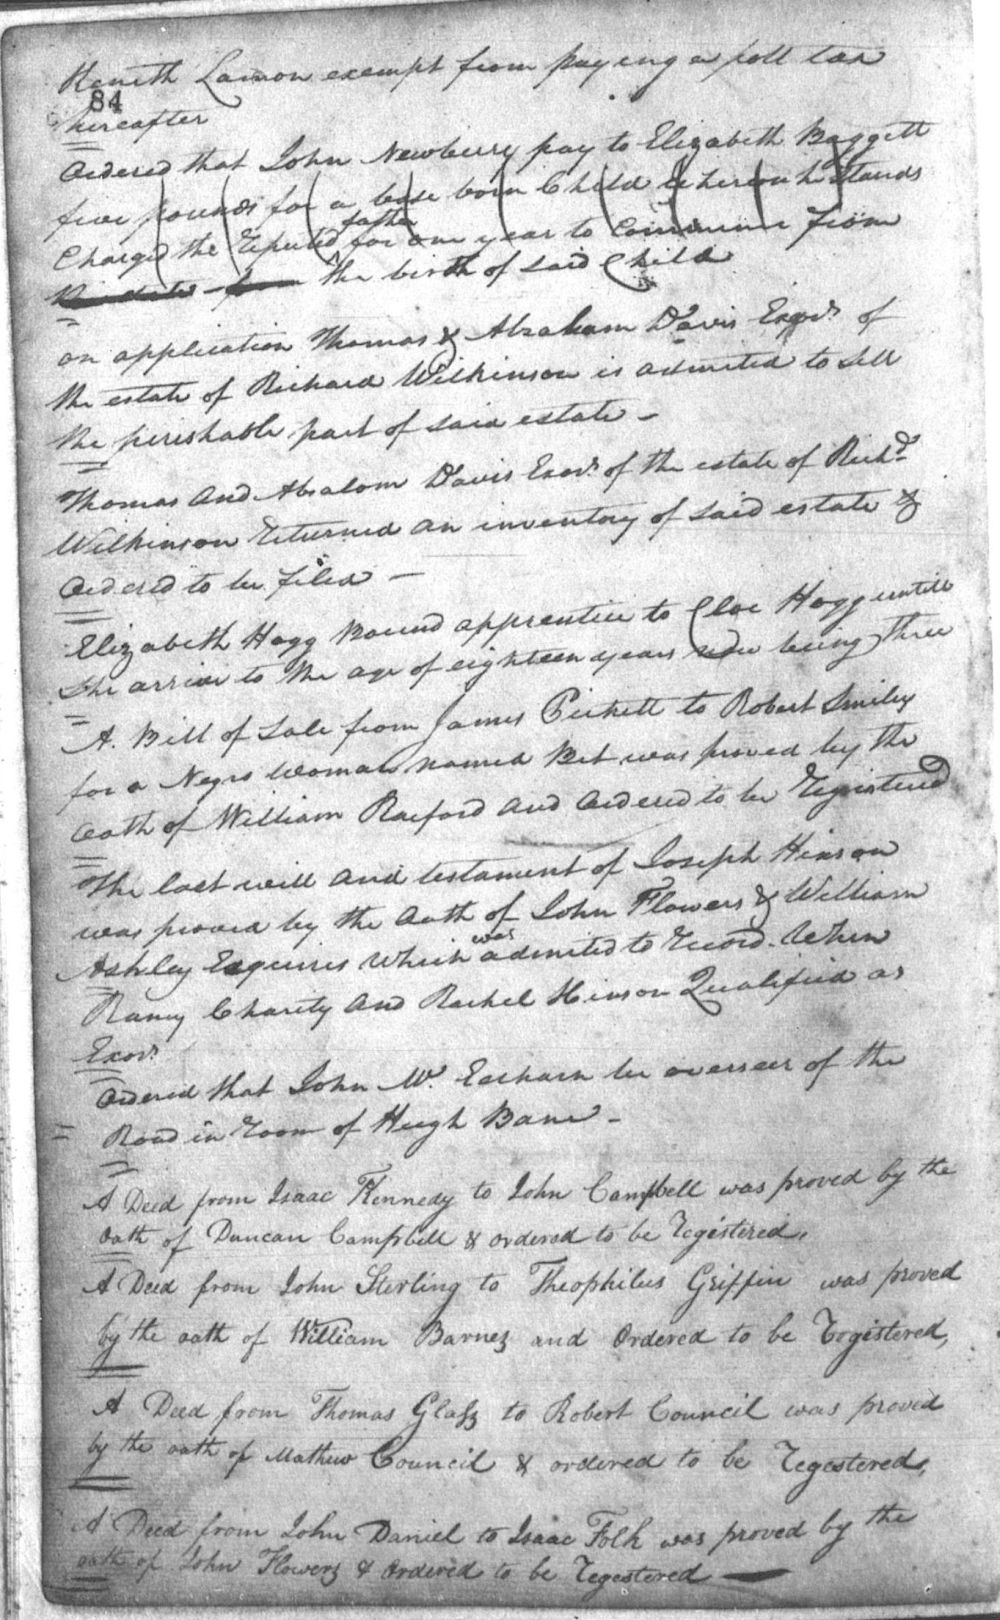 Keneth Lamon exempt from paying a poll tax
84
hereafter
Ordered that John Newberry pay to Elizabeth Baggett
five pounds for a base born Child whereowh Stands
Charged the reputed father for one year to Commence from
the birth of said Child
on application Thomas & Abraham Davis Exors of
the estate of Richard Wilkinson is admited to sell
the perishable part of said estate -
Thomas And Absalom Davis Exors of the estate of Richd
Wilkinson returned an inventory of said estate &
Ordered to be filed -
Elizabeth Hogg Bound apprentice to Cloe Hogg untill
she arrive to the age of eighteen years now being three
A. Bill of Sale from James Pickett to Robert Smiley
for a Negro Woman named Bet was proved by the
Oath of William Raiford and Ordered to be registered
The last will and testament of Joseph Hinson
was proved by the Oath of John Flowers & William
Ashley Esquires Which was admited to record. When
Charity And Rachel Hinson Qualified as
Exors
Ordered that John Mc. be overseer of the
Road in room of Hugh Bane -
A Deed from Isaac Kennedy to John Campbell was proved by the
Oath of Duncan Campbell & ordered to be registered,
A Deed from John Sterling to Theophilus Griffin was proved
by the oath of William Barnes and Ordered to be registered,
A Deed from Thomas Glass to Robert Council was proved
by the oath of Mathew Council & ordered to be regestered,
A Deed from John Daniel to Isaac Folk was proved by the
oath of John Flowers & Ordered to be regestered —